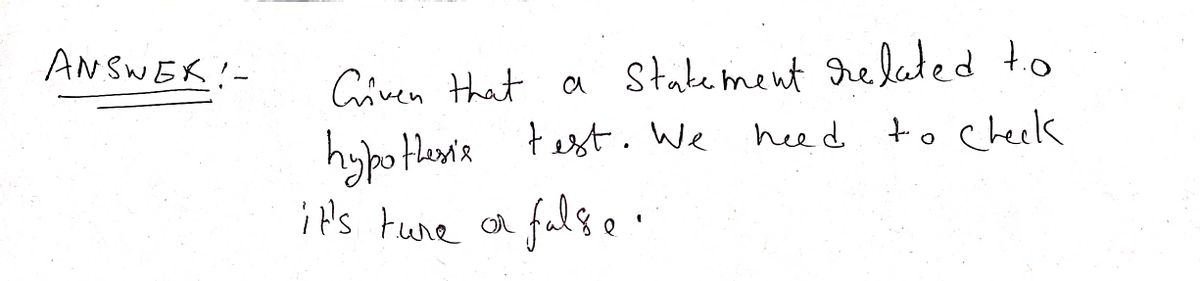 ANSWER :- Given that a statement related to
hypothesis test. We need to check
it's ture or false.